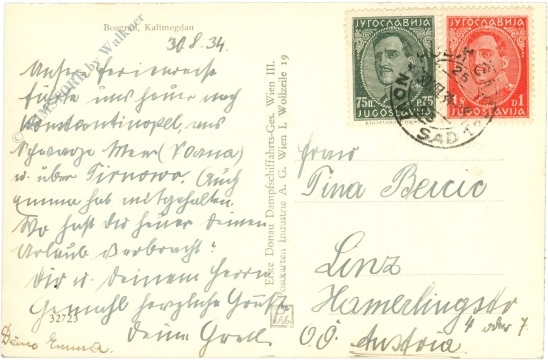 Beograd, Kalimegdan
30.8.34.
Unsere Ferienreise
führte uns heuer nach
Konstantinopel, ans
Schwarze Meer (Varna)
u. über Tirnowo. (Auch
Emma hat mitgehalten.
Wo hast du heuer deinen
Urlaub verbracht?
Dir u. deinem Herrn
Gemahl herzliche Grüße
Deine Gretl
Deine Emma.
32723
Erste Donau Dampfschiffahrts-Ges. Wien III.
Postkarten Industrie A. G. Wien I. Wollzeile 19
ЈУГОСЛАВИЈА
75П. P.75
JUGOSLAVIJA
ЈУГОСЛАВИЈА
D1
JUGOSLAVIJA
NOVI SAD
Frau
Tina Bercic
Linz
Hamerlingstr
4 oder 7.
O.Ö. Austria